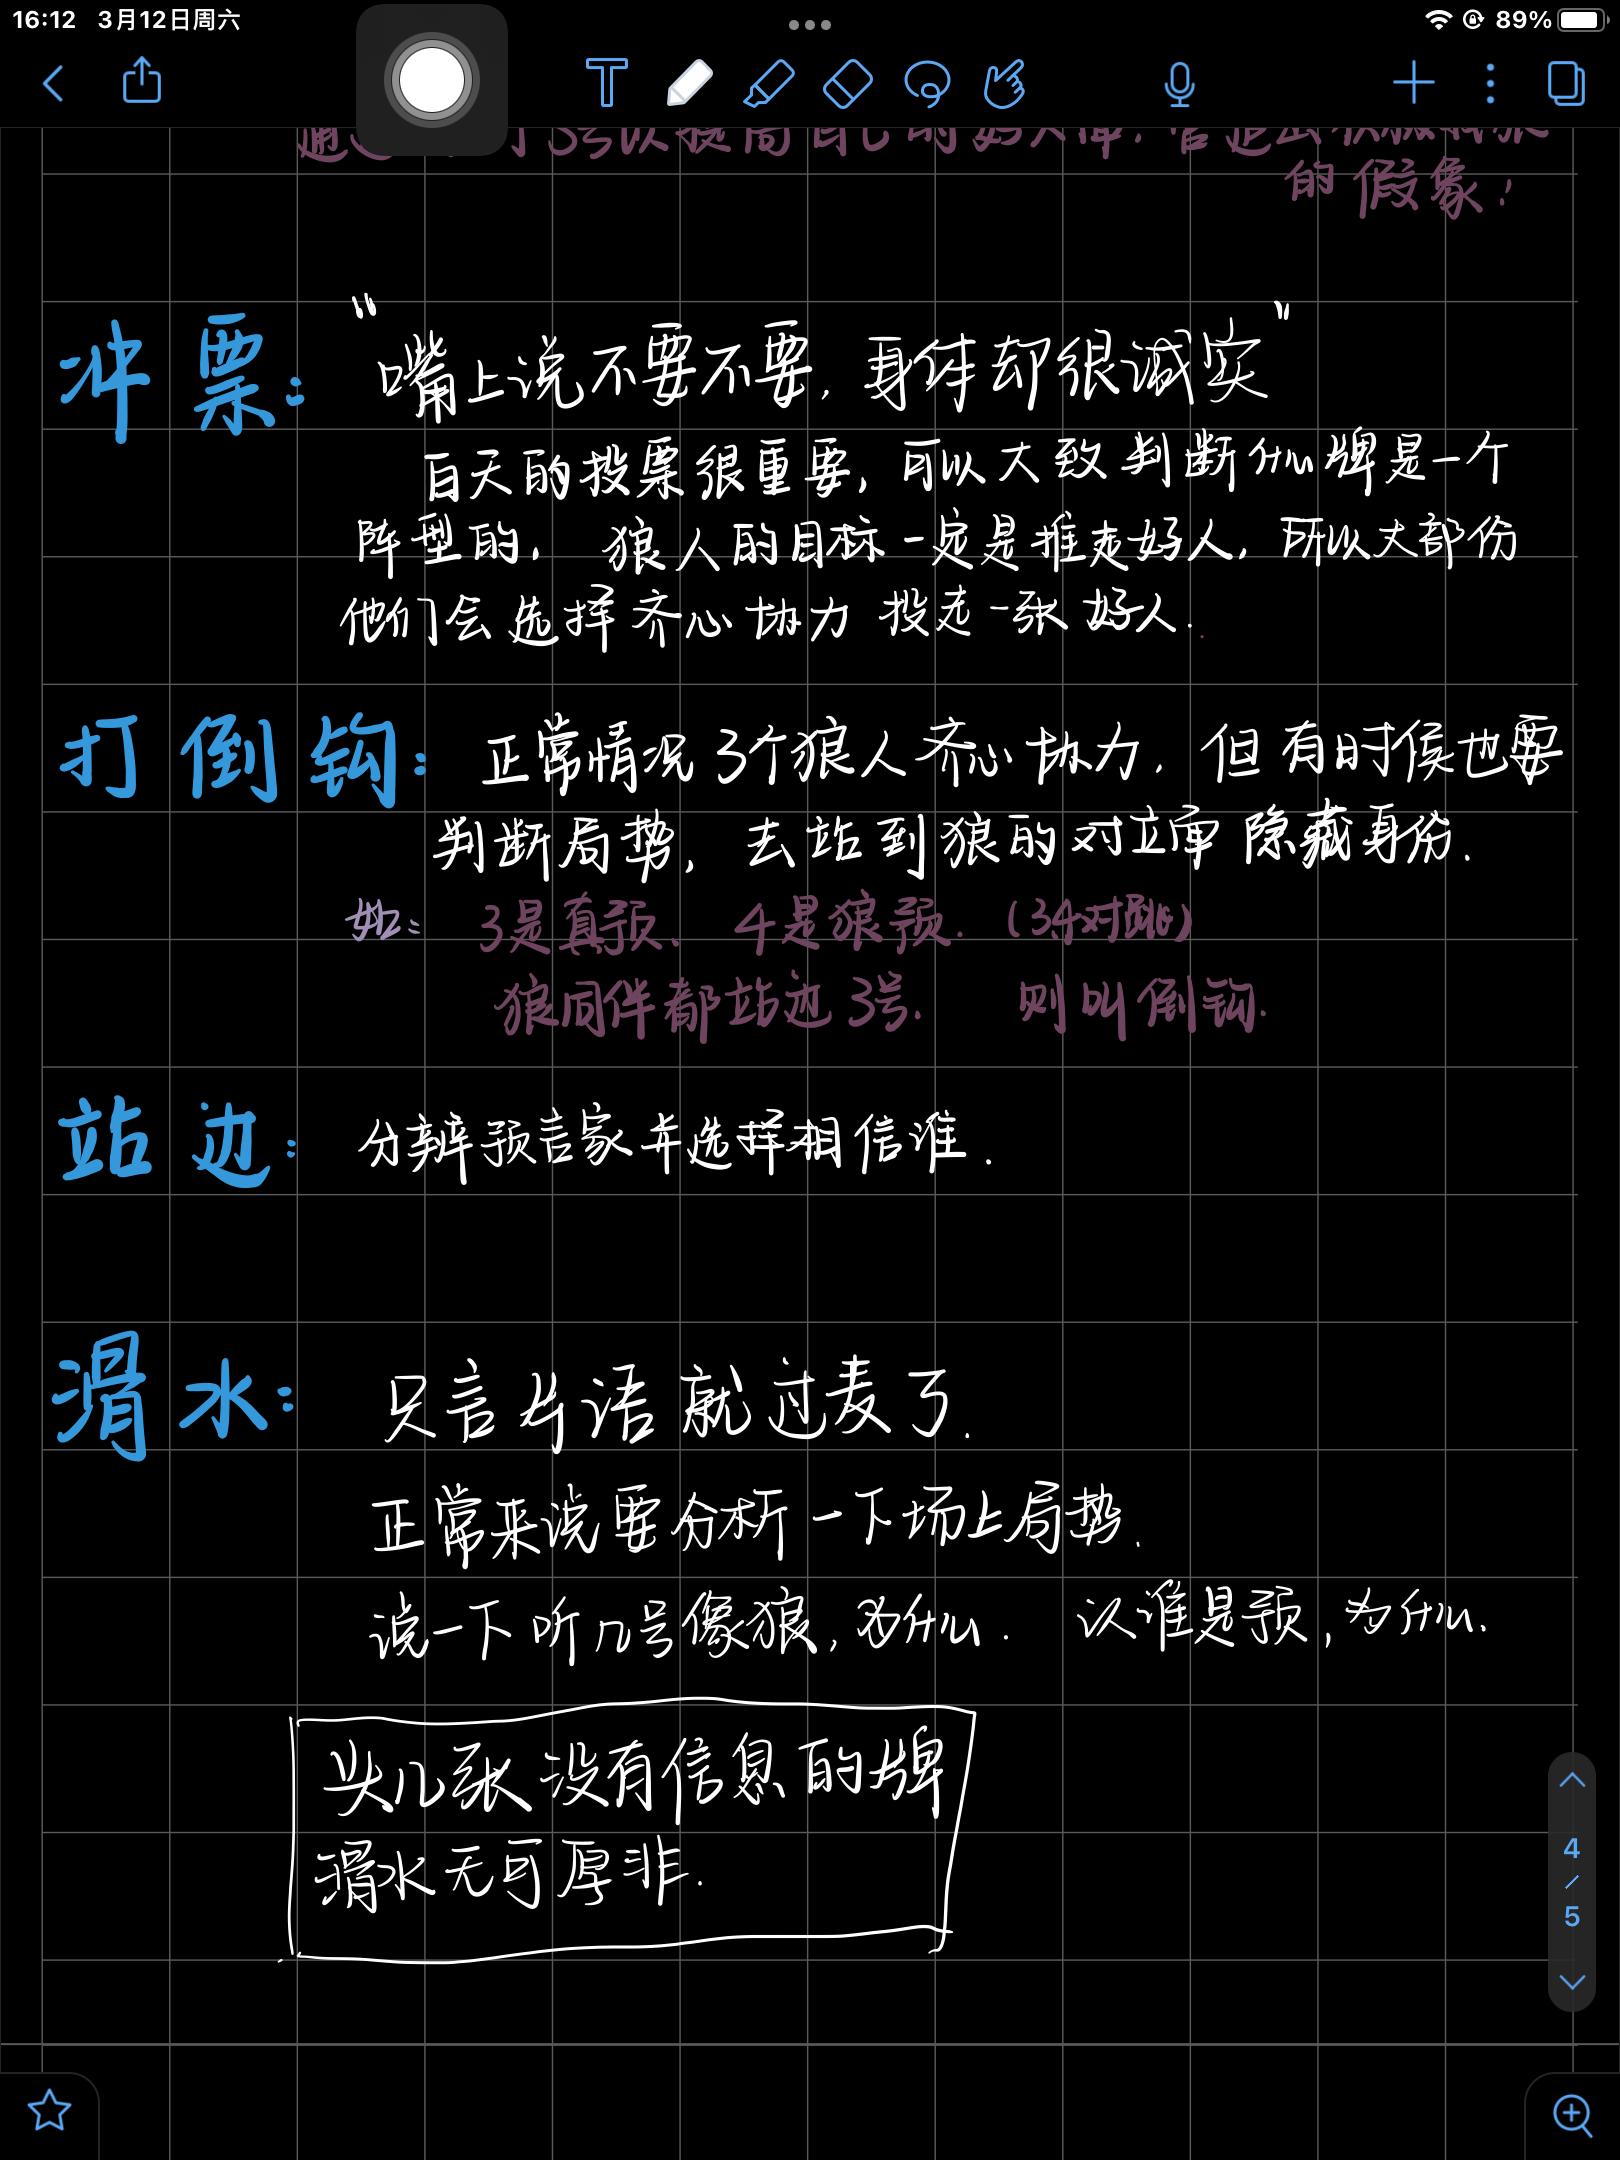 16:12 3月12日周六 89%
的假象!
冲票: "嘴上说不要不要,身体却很诚实"
白天的投票很重要,可以大致判断什么牌是一个
阵型的, 狼人的目标一定是推走好人,所以大部份
他们会选择齐心协力投走一张好人.
打倒钩: 正常情况3个狼人齐心协力,但有时候也要
判断局势,去站到狼的对立面隐藏身份.
如: 3是真预、4是狼预.(34对跳)
狼同伴都站边3号. 则叫倒钩.
站边: 分辨预言家并选择相信谁.
滑水: 只言片语就过麦了.
正常来说要分析一下场上局势.
说一下听几号像狼,为什么. 认谁是预,为什么.
头几张没有信息的牌
滑水无可厚非.
4
/
5